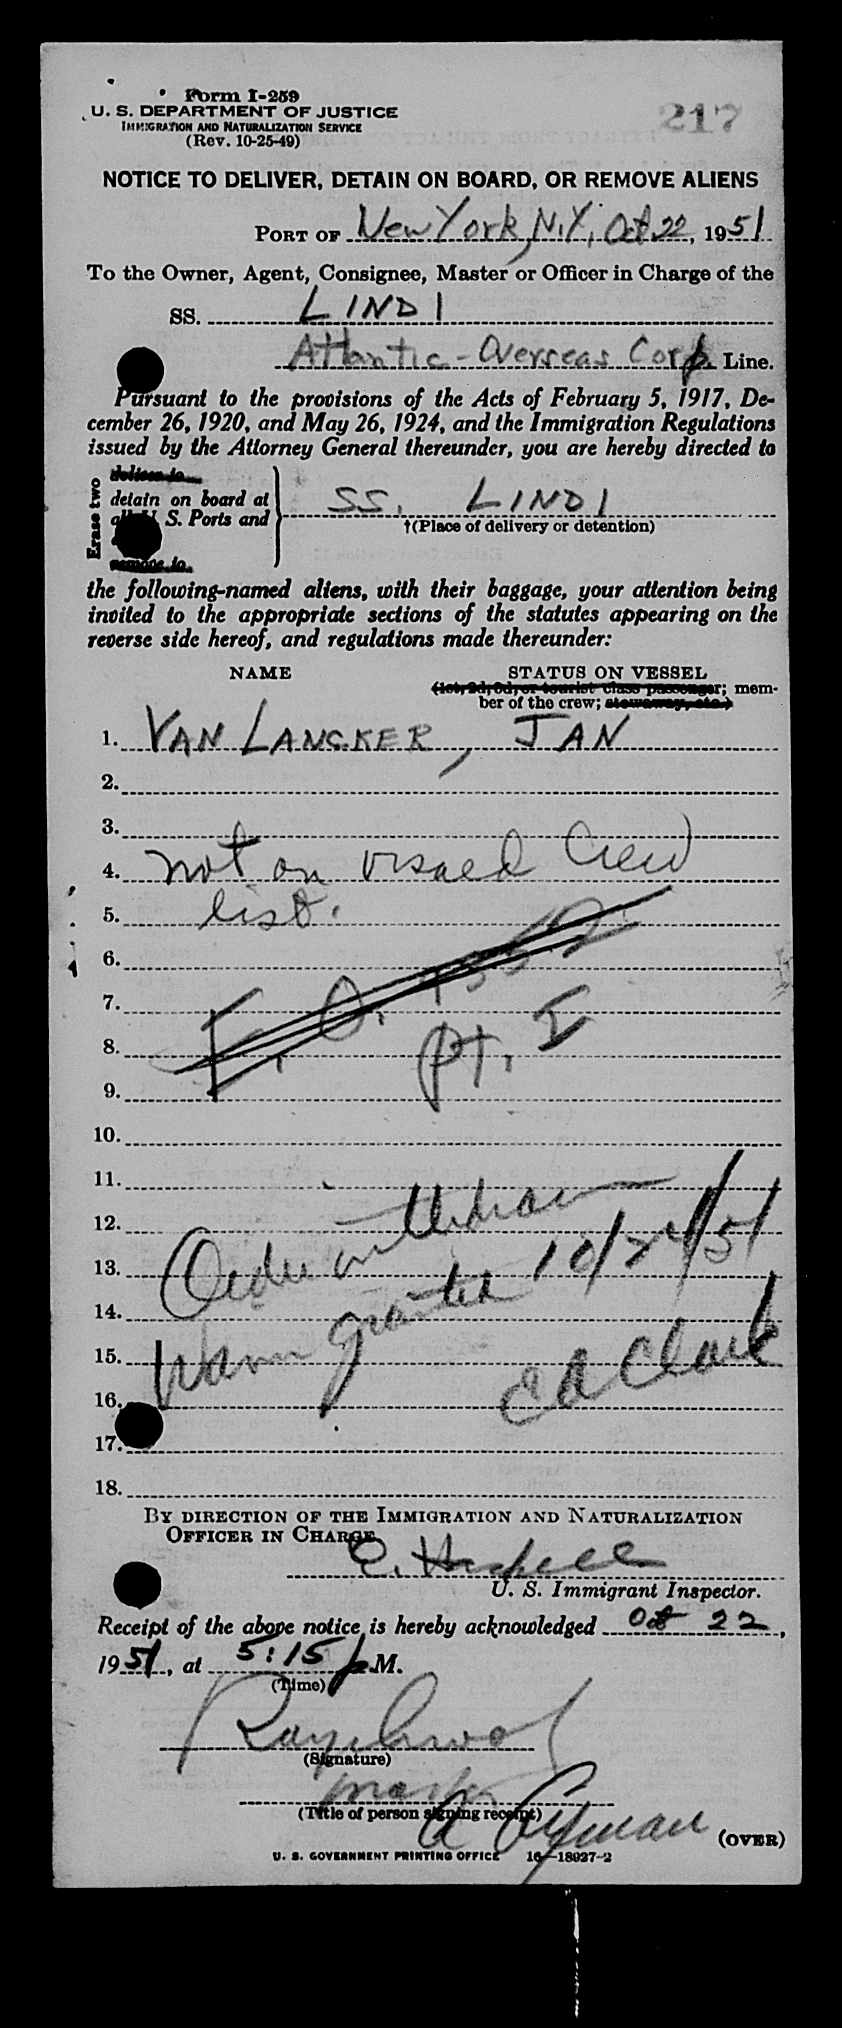 Form I-259
U. S. DEPARTMENT OF JUSTICE
IMMIGRATION AND NATURALIZATION SERVICE
(Rev. 10-25-49)
217
NOTICE TO DELIVER, DETAIN ON BOARD, OR REMOVE ALIENS
PORT OF New York, N.Y., Oct 22, 1951
To the Owner, Agent, Consignee, Master or Officer in Charge of the
SS. LINDI
Atlantic-Overseas Corp. Line.
Pursuant to the provisions of the Acts of February 5, 1917, De-
cember 26, 1920, and May 26, 1924, and the Immigration Regulations
issued by the Attorney General thereunder, you are hereby directed to
Erase two
deliver to
detain on board at
all U. S. Ports and
remove to
SS. LINDI
†(Place of delivery or detention)
the following-named aliens, with their baggage, your attention being
invited to the appropriate sections of the statutes appearing on the
reverse side hereof, and regulations made thereunder:
NAME STATUS ON VESSEL
(1st, 2d, 3d, or tourist class passenger; mem-
ber of the crew; stowaway, etc.)
1. VAN LANCKER, JAN
2.
3.
4. not on visaed Crew
5. list.
6.
7. E. O. 1352
8. pt. I
9.
10.
11.
12. Order withdrawn
13. 10/24/51
14. granted
15. Ed Clark
16.
17.
18.
BY DIRECTION OF THE IMMIGRATION AND NATURALIZATION
OFFICER IN CHARGE
U. S. Immigrant Inspector.
Receipt of the above notice is hereby acknowledged Oct 22,
1951, at 5:15 p.M.
(Time)
(Signature)
Master
(Title of person signing receipt)
(OVER)
U. S. GOVERNMENT PRINTING OFFICE 16—18927-2